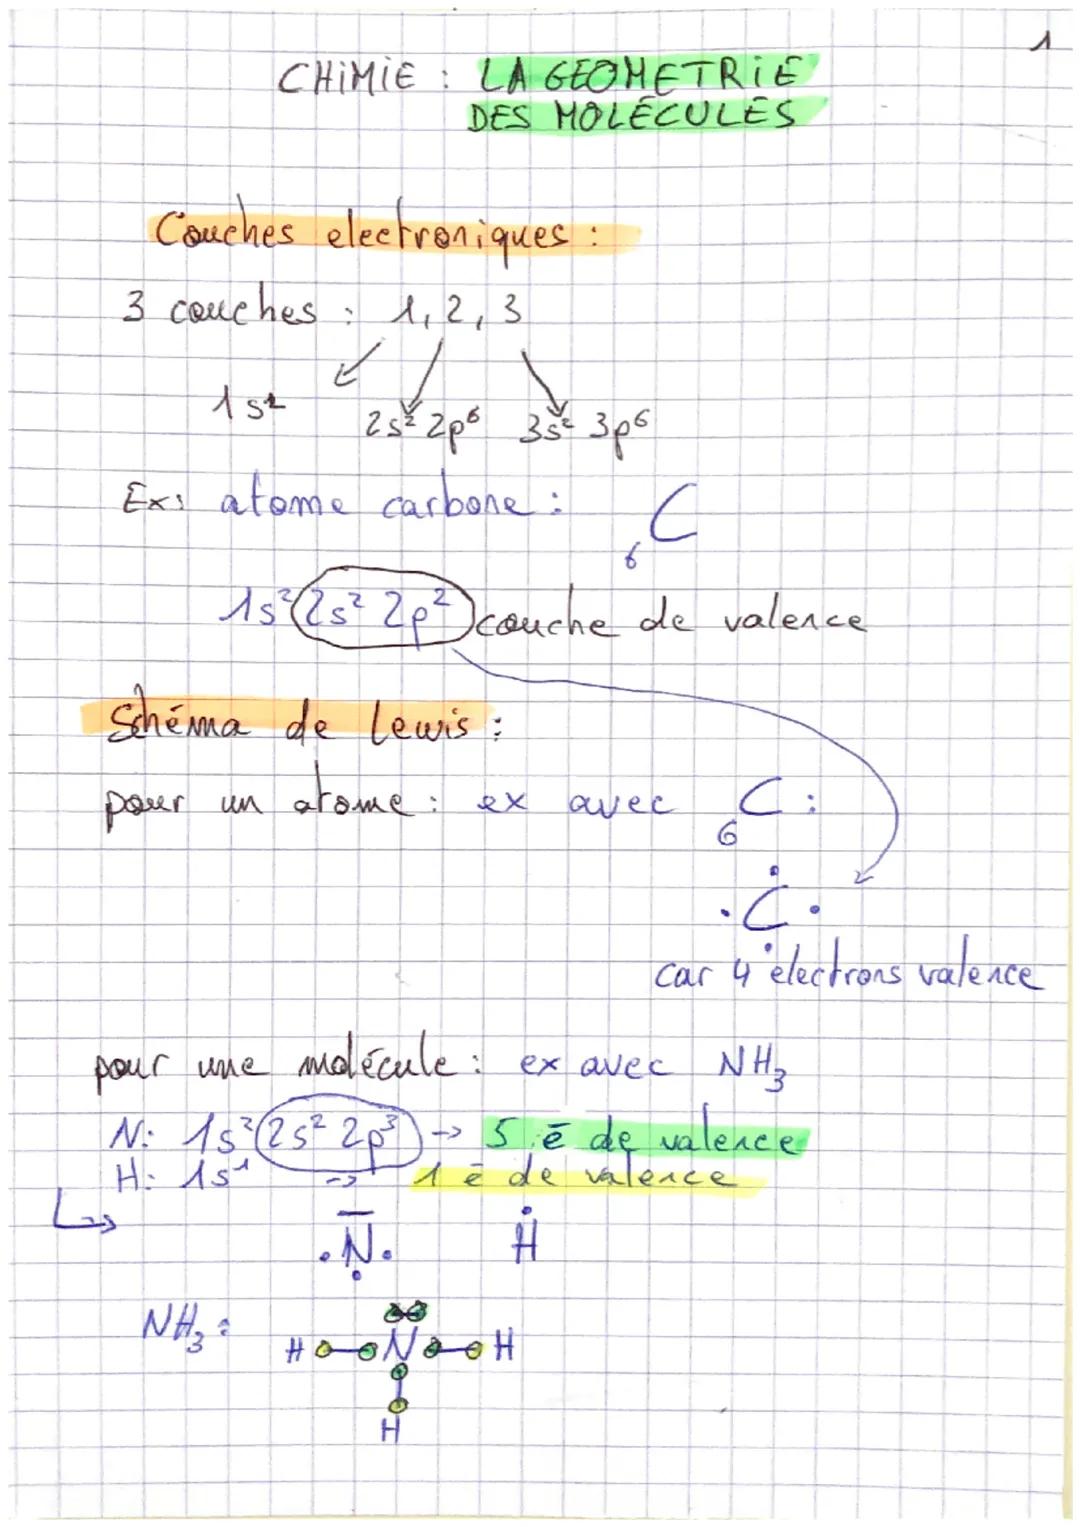 1
CHIMIE : LA GEOMETRIE
DES MOLÉCULES
Couches electroniques :
3 couches : 1, 2, 3
1s² 2s² 2p⁶ 3s² 3p⁶
Ex: atome carbone : ₆C
1s² 2s² 2p² couche de valence
Schéma de Lewis :
pour un atome : ex avec ₆C :
·C·
car 4 électrons valence
pour une molécule : ex avec NH₃
N: 1s² 2s² 2p³ -> 5 ē de valence
H: 1s¹ -> 1 ē de valence
N H
NH₃ :
H N H
H